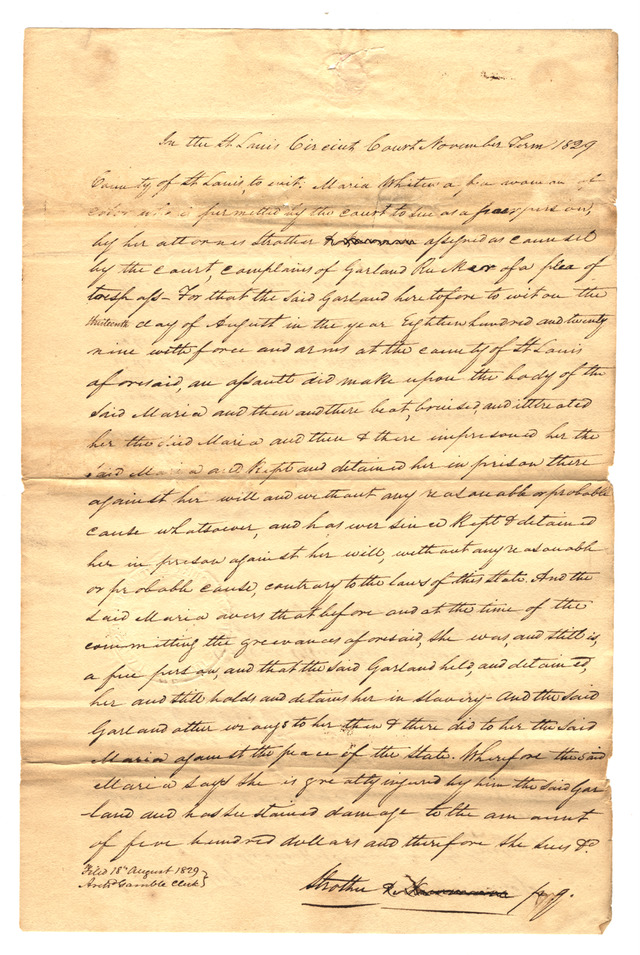 In the St Louis Circuit Court November Term 1829
County of St Louis, to wit. Maria Whiten a free woman of
color who is permitted by the court to sue as a poor person,
by her attornies Strother & assigned as counsel
by the court, complains of Garland Rucker of a plea of
trespass - For that the said Garland heretofore to wit on the
thirteenth day of August in the year Eighteen hundred and twenty
nine with force and arms at the county of St Louis
aforesaid, an assault did make upon the body of the
said Maria and then and there beat, bruised, and illtreated
her the said Maria and then & there imprisoned her the
said Maria and Kept and detained her in prison there
against her will and without any reasonable or probable
cause whatsoever, and has ever since Kept & detained
her in prison against her will, without any reasonable
or probable cause, contrary to the laws of this State. And the
said Maria avers that before and at the time of the
committing the greevances aforesaid, she was, and still is,
a free person, and that the said Garland held, and detained,
her and still holds and detains her in slavery - And the said
Garland other wrongs to her then & there did to her the said
Maria against the peace of the State. Wherefore the said
Maria says she is greatly injured by him the said Gar
land and has sustained damage to the amount
of five hundred dollars and therefore she sues &c.
Filed 18th August 1829
Archd Gamble Clerk
Strother & p.q.